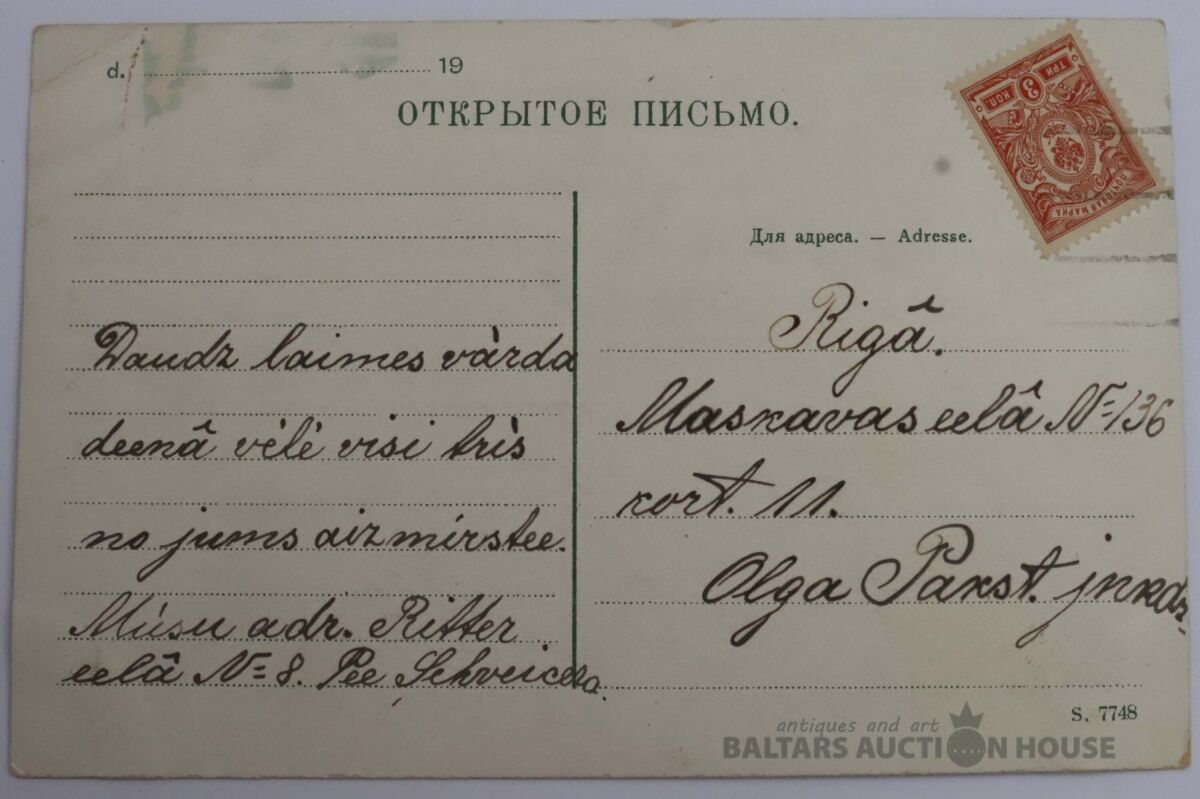 d. 19
ОТКРЫТОЕ ПИСЬМО.
ТРИ 3 КОП.
ПОЧТОВАЯ МАРКА
Для адреса. — Adresse.
Daudz laimes vàrda
deenâ vèlè visi trìs
no jums aizmirstee.
Mùsu adr. Ritter
eelâ № 8. Pee Schveicera.
Rigâ.
Maskavas eelâ № 136
kort. 11.
Olga Pakst. jnkdz
S. 7748
antiques and art
BALTARS AUCTION HOUSE